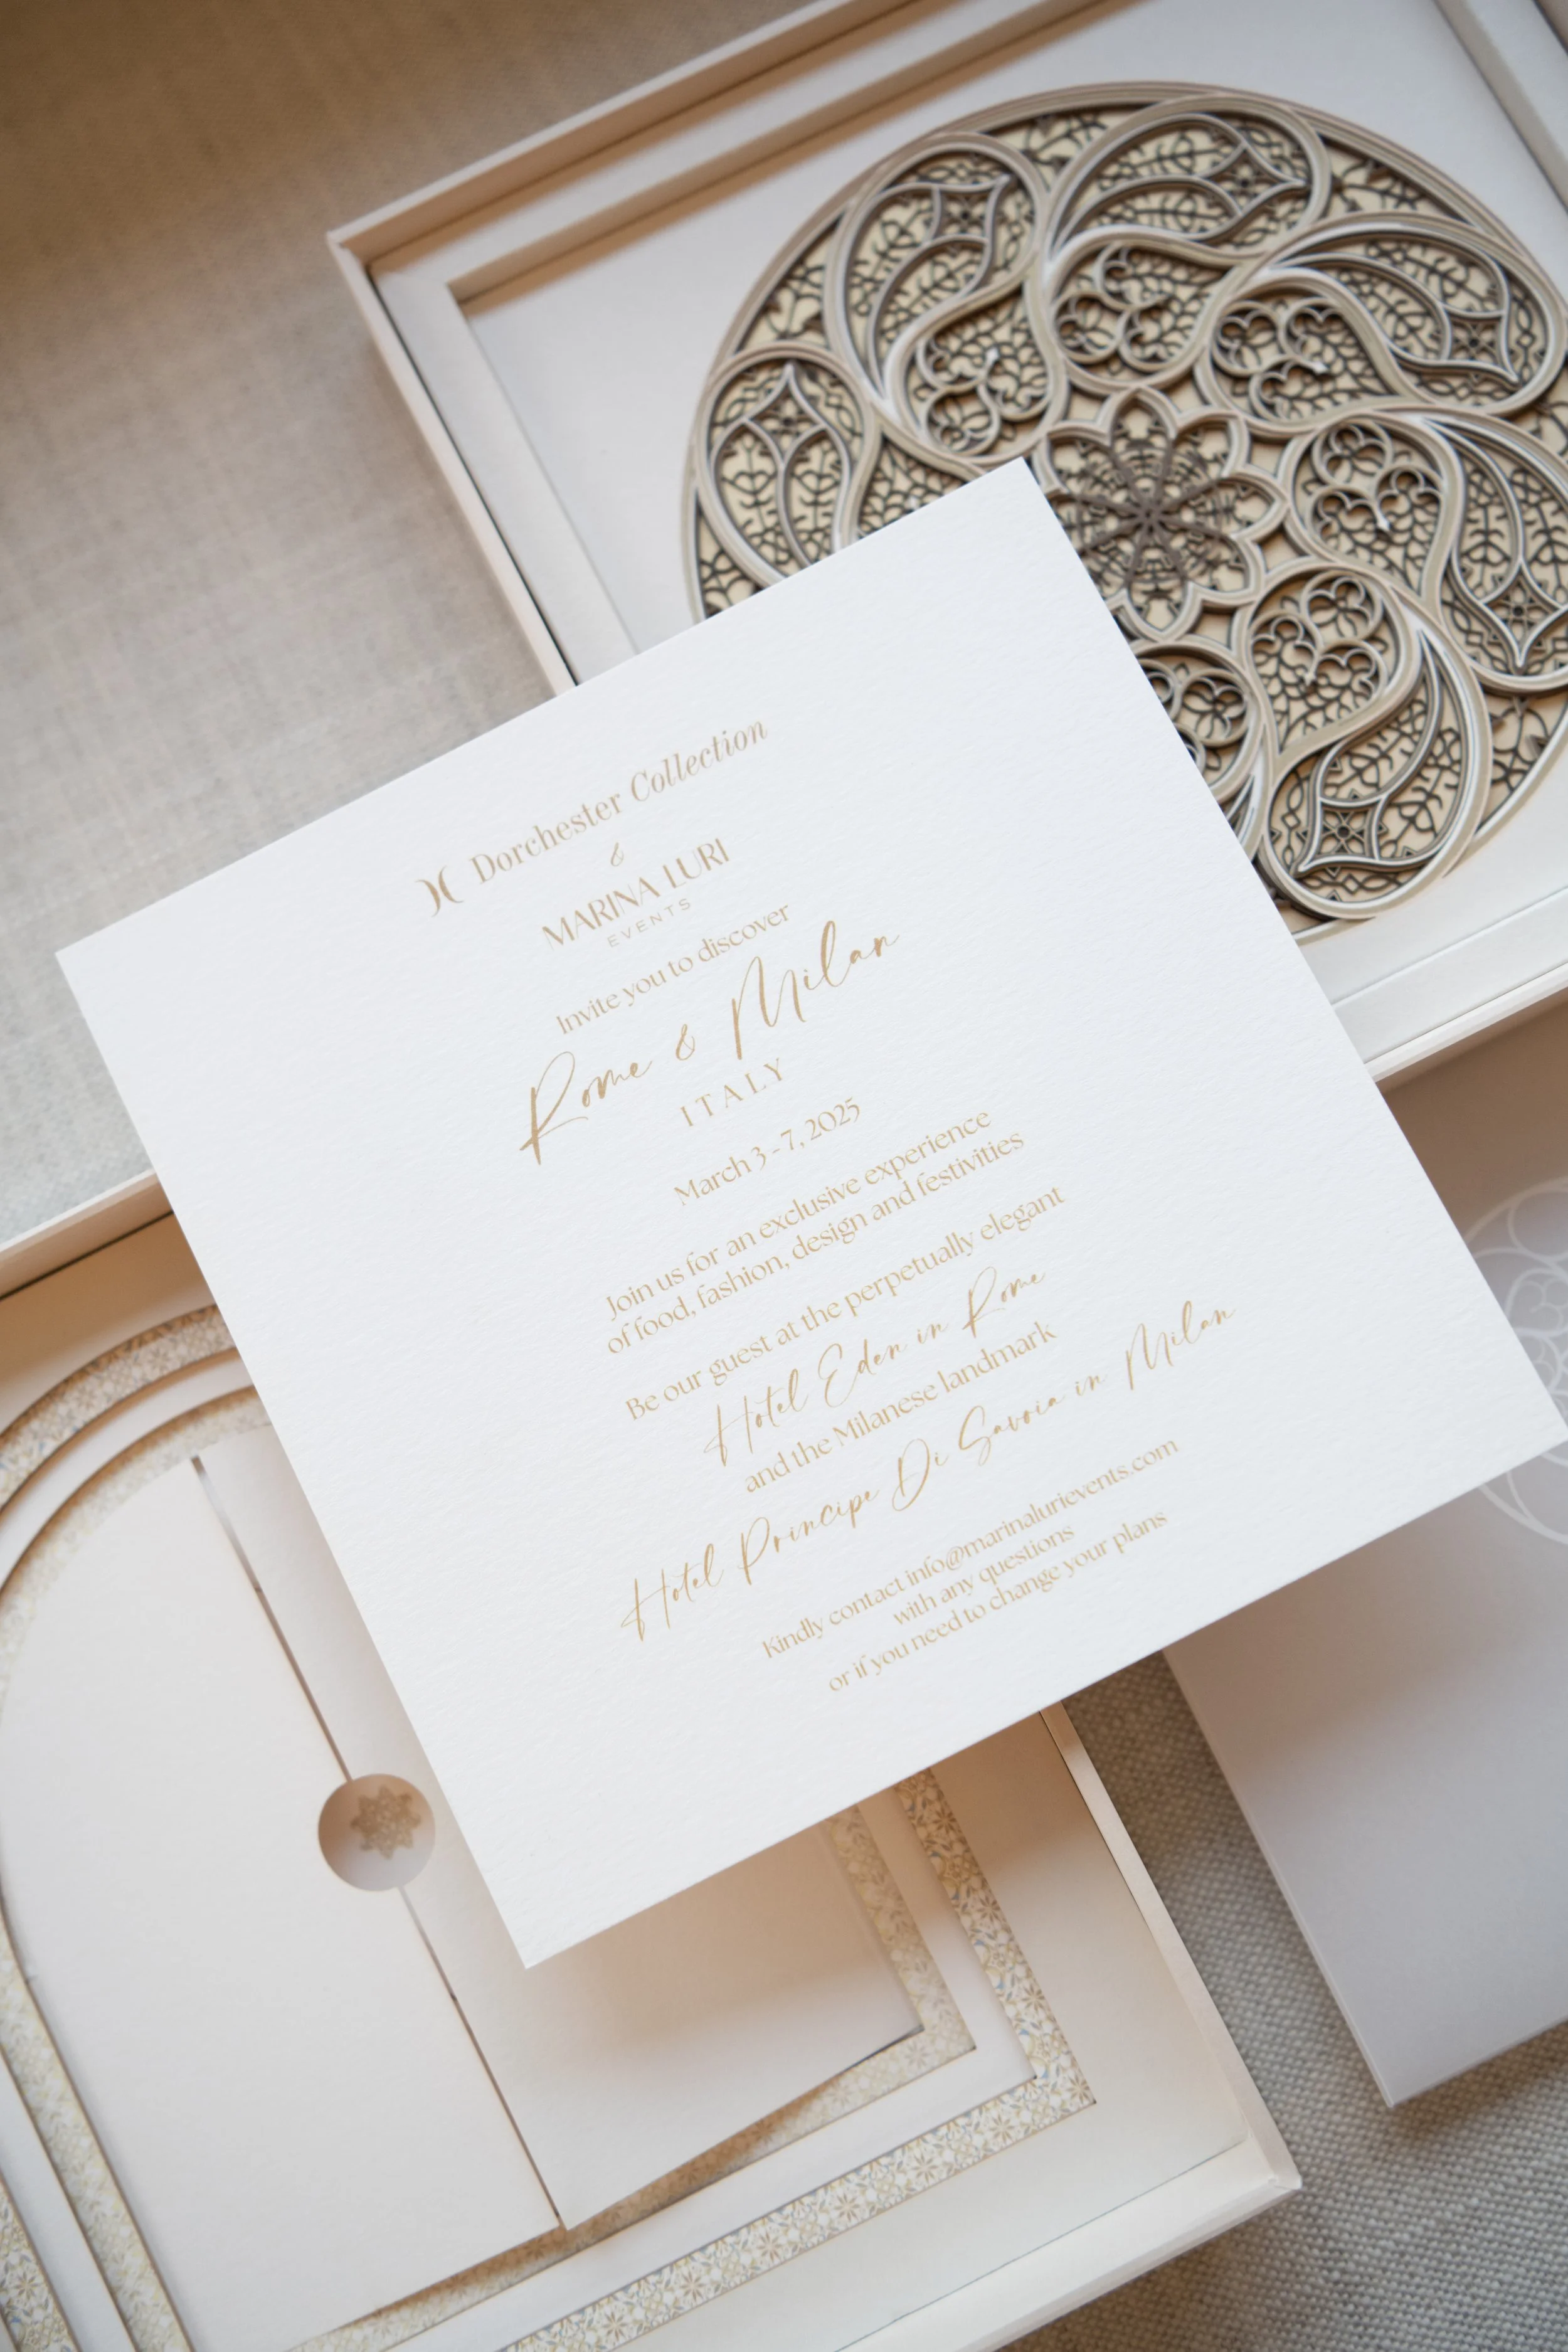 Dorchester Collection
&
MARINA LURI
EVENTS
Invite you to discover
Rome & Milan
ITALY
March 3 - 7, 2025
Join us for an exclusive experience
of food, fashion, design and festivities
Be our guest at the perpetually elegant
Hotel Eden in Rome
and the Milanese landmark
Hotel Principe Di Savoia in Milan
Kindly contact info@marinalurievents.com
with any questions
or if you need to change your plans